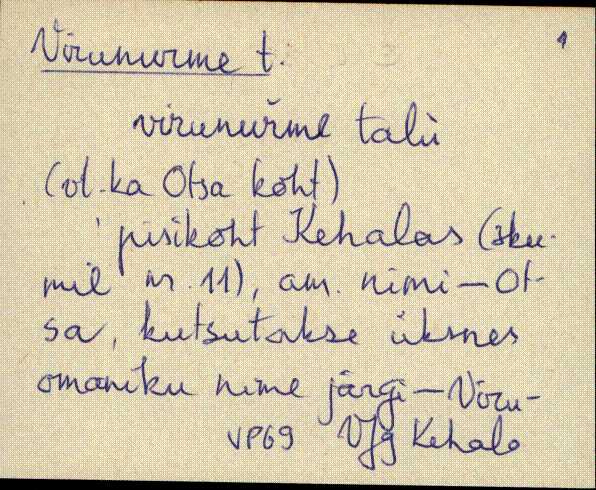 Virunurme t.
1
virunuřme talù
(vt. ka Otsa koht)
pisikoht Kehalas (sku-
mil nr. 11), am. nimi – Ot-
sa, kutsutakse üksnes
omaniku nime järgi – Viru-
VP69 VJg Kehala